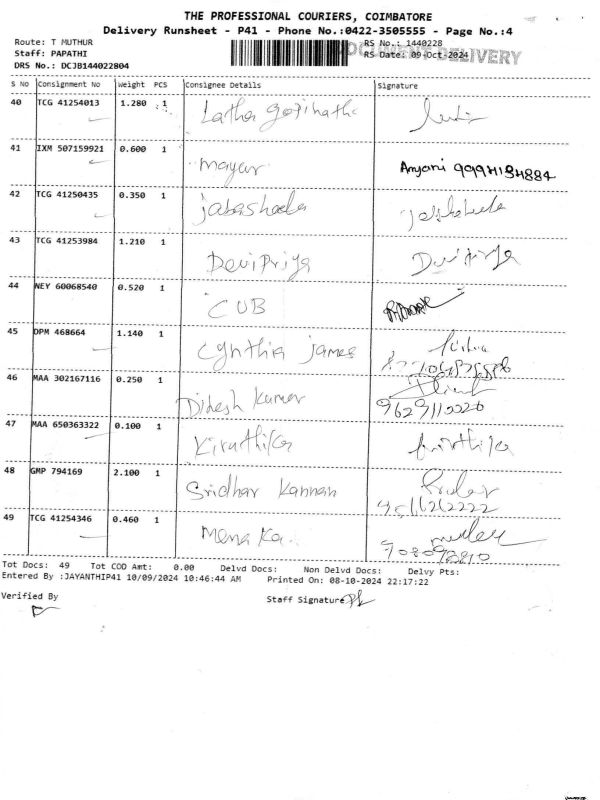 THE PROFESSIONAL COURIERS, COIMBATORE
Delivery Runsheet - P41 - Phone No.:0422-3505555 - Page No.:4
Route: T MUTHUR
RS No.: 1440228
Staff: PAPATHI
RS Date: 09-Oct-2024
DELIVERY
DRS No.: DCJB144022804
S No Consignment No Weight PCS Consignee Details Signature
40 TCG 41254013 1.280 1 Latha gopinath
41 IXM 507159921 0.600 1 mayur Anjani
42 TCG 41250435 0.350 1 jabasheela
43 TCG 41253984 1.210 1 Devipriya Devipriya
44 NEY 60068540 0.520 1 CUB
45 DPM 468664 1.140 1 Cynthia James
46 MAA 302167116 0.250 1 Dinesh kumar
47 MAA 650363322 0.100 1 Kiruthika
48 GMP 794169 2.100 1 Sridhar Kannan
49 TCG 41254346 0.460 1 Menaka.
Tot Docs: 49 Tot COD Amt: 0.00 Delvd Docs: Non Delvd Docs: Delvy Pts:
Entered By :JAYANTHIP41 10/09/2024 10:46:44 AM Printed On: 08-10-2024 22:17:22
Verified By Staff Signature